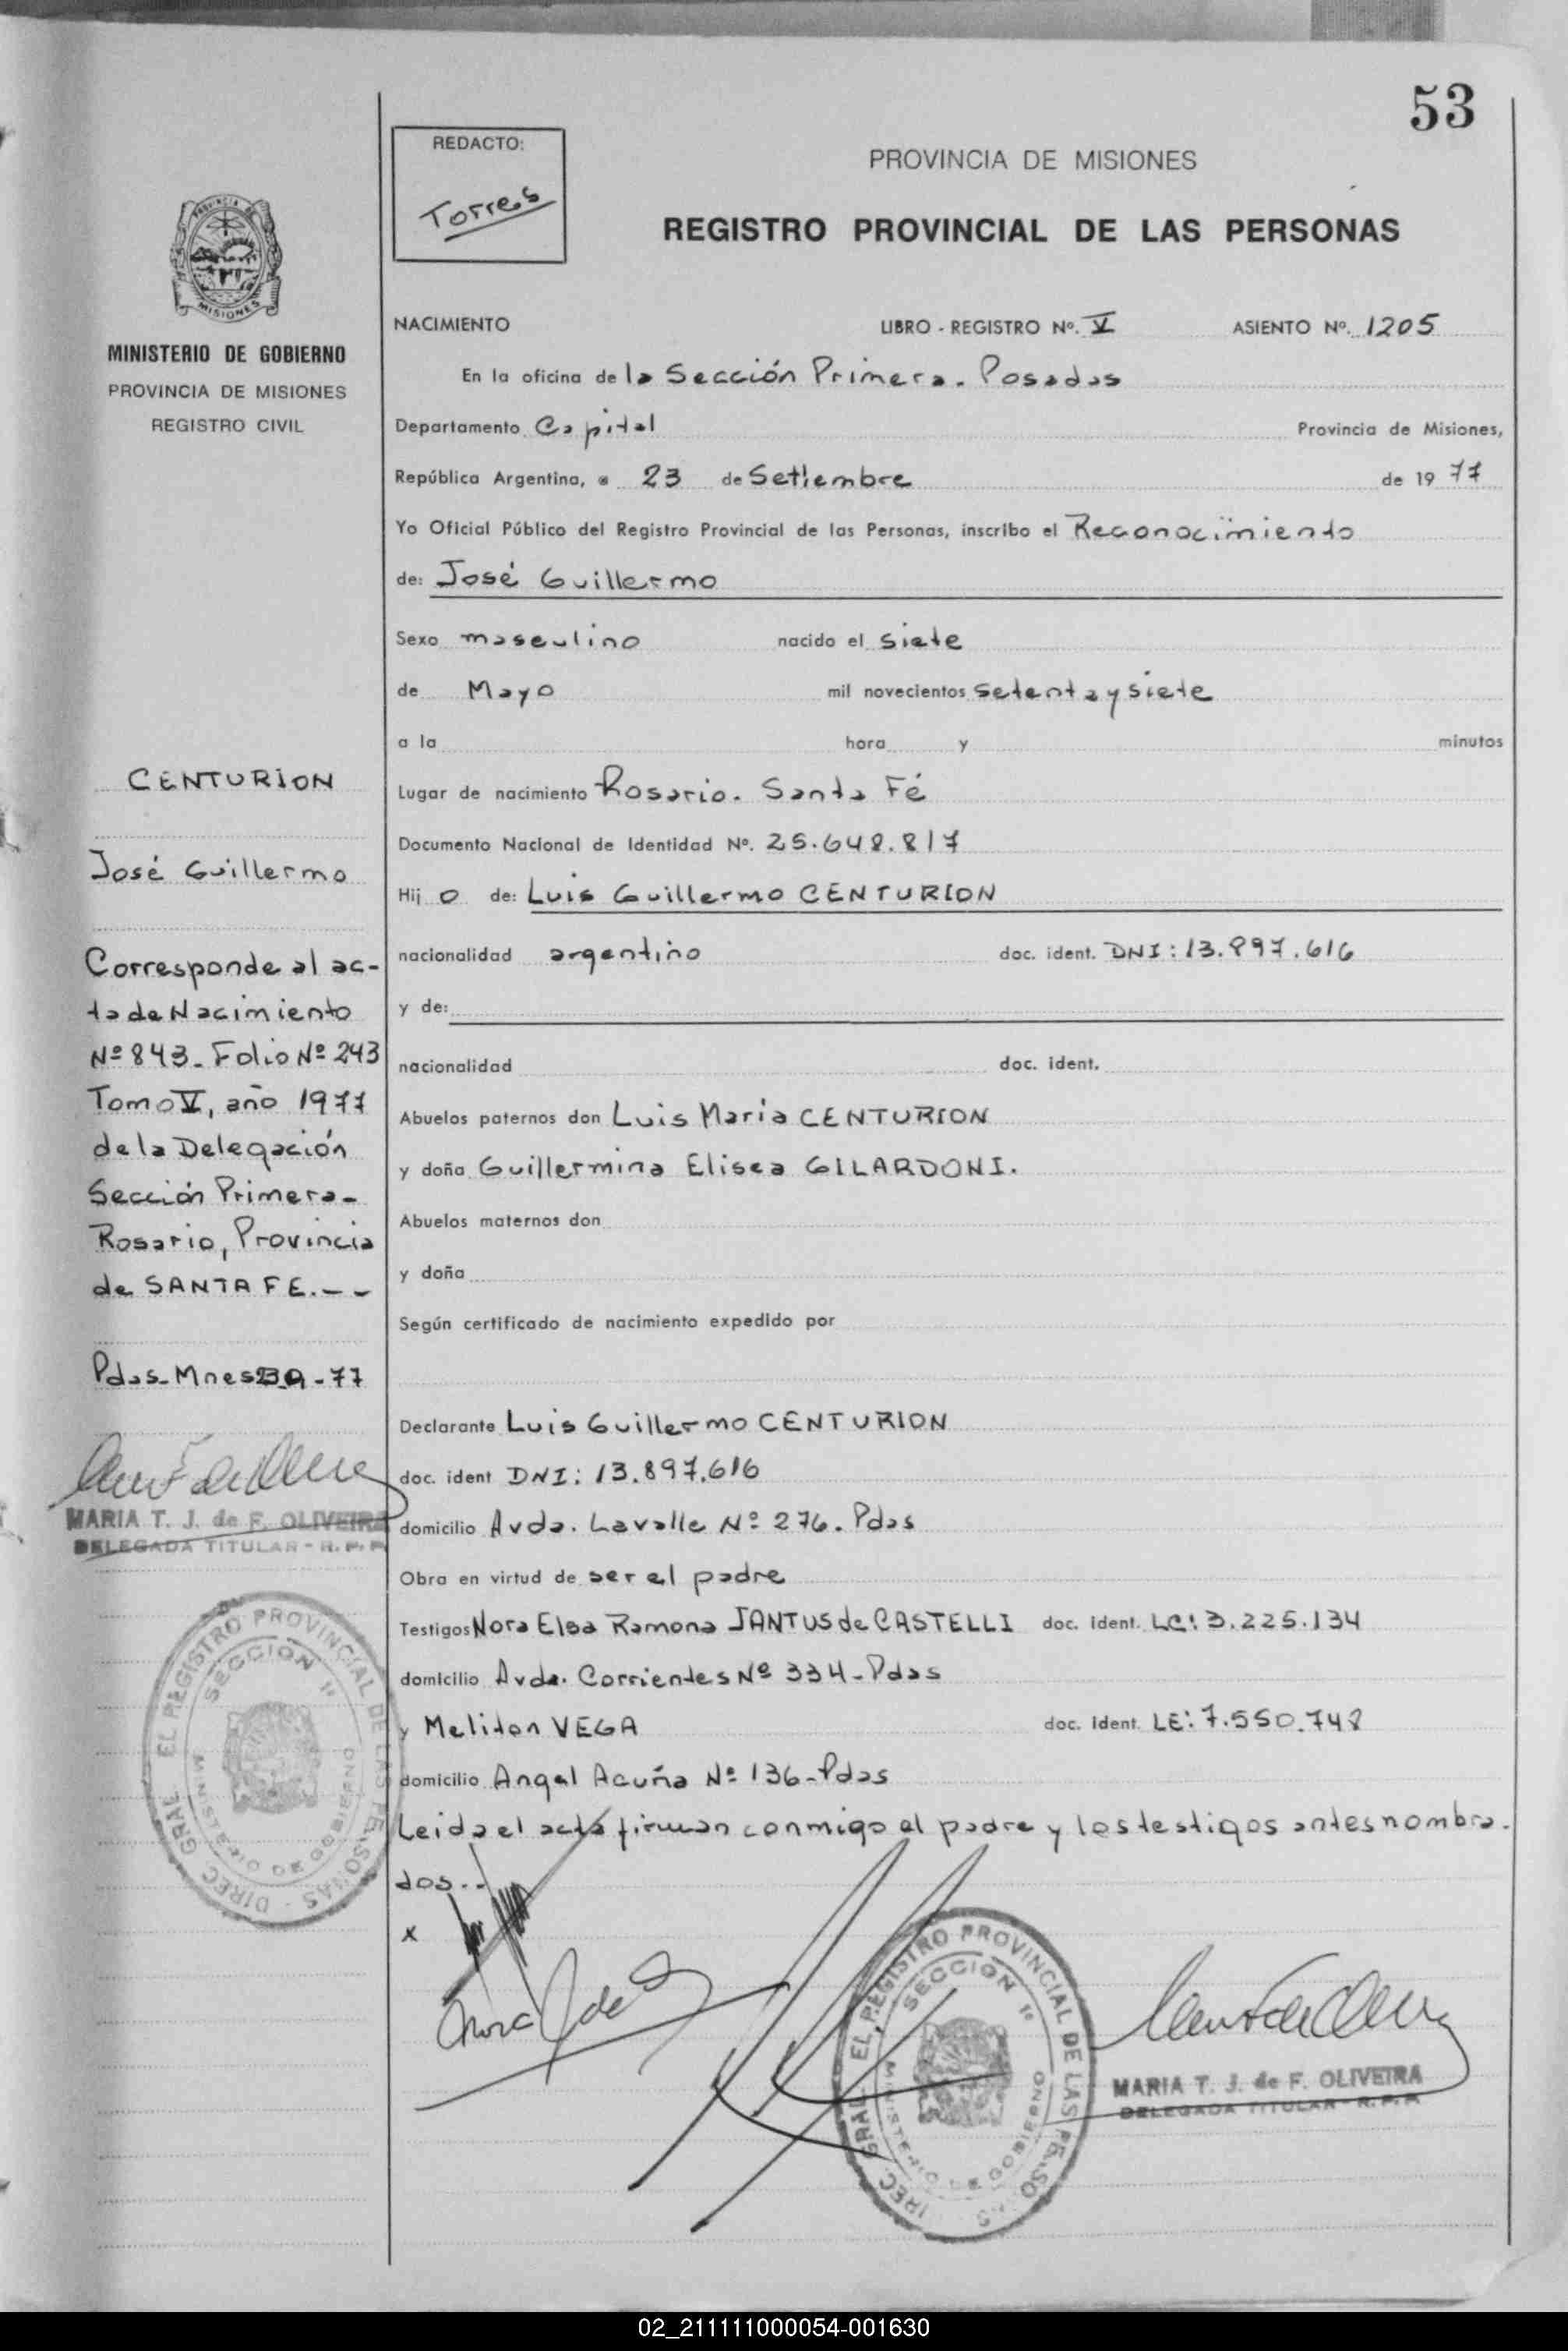 53
REDACTO:
Torres
PROVINCIA DE MISIONES
REGISTRO PROVINCIAL DE LAS PERSONAS
MISIONES
MINISTERIO DE GOBIERNO
PROVINCIA DE MISIONES
REGISTRO CIVIL
NACIMIENTO LIBRO - REGISTRO Nº. V ASIENTO Nº. 1205
En la oficina de la Sección Primera. Posadas
Departamento Capital Provincia de Misiones,
República Argentina, a 23 de Setiembre de 1977
Yo Oficial Público del Registro Provincial de las Personas, inscribo el Reconocimiento
de: José Guillermo
Sexo masculino nacido el siete
de Mayo mil novecientos setenta y siete
a la hora y minutos
Lugar de nacimiento Rosario. Santa Fé
Documento Nacional de Identidad Nº. 25.648.817
Hijo de: Luis Guillermo CENTURION
nacionalidad argentino doc. ident. DNI: 13.897.616
y de:
nacionalidad doc. ident.
Abuelos paternos don Luis Maria CENTURION
y doña Guillermina Elisea GILARDONI.
Abuelos maternos don
y doña
Según certificado de nacimiento expedido por
Declarante Luis Guillermo CENTURION
doc. ident DNI: 13.897.616
domicilio Avda. Lavalle Nº 276. Pdas
Obra en virtud de ser el padre
Testigos Nora Elsa Ramona JANTUS de CASTELLI doc. ident. LC: 3.225.134
domicilio Avda. Corrientes Nº 334-Pdas
y Meliton VEGA doc. ident. LE: 7.550.748
domicilio Angel Acuña Nº 136-Pdas
Leida el acta firman conmigo el padre y los testigos antes nombra-
dos.-
x
CENTURION
José Guillermo
Corresponde al ac-
ta de Nacimiento
Nº 843- Folio Nº 243
Tomo V, año 1977
de la Delegación
Sección Primera-
Rosario, Provincia
de SANTA FE.--
Pdas-Mnes 23.9-77
MARIA T. J. de F. OLIVEIRA
DELEGADA TITULAR - R. P. P.
DIREC. GRAL. EL REGISTRO PROVINCIAL DE LAS PERSONAS
SECCION 1ª
MINISTERIO DE GOBIERNO
DIREC. GRAL. EL REGISTRO PROVINCIAL DE LAS PERSONAS
SECCION 1ª
MINISTERIO DE GOBIERNO
MARIA T. J. de F. OLIVEIRA
DELEGADA TITULAR - R. P. P.
02_211111000054-001630